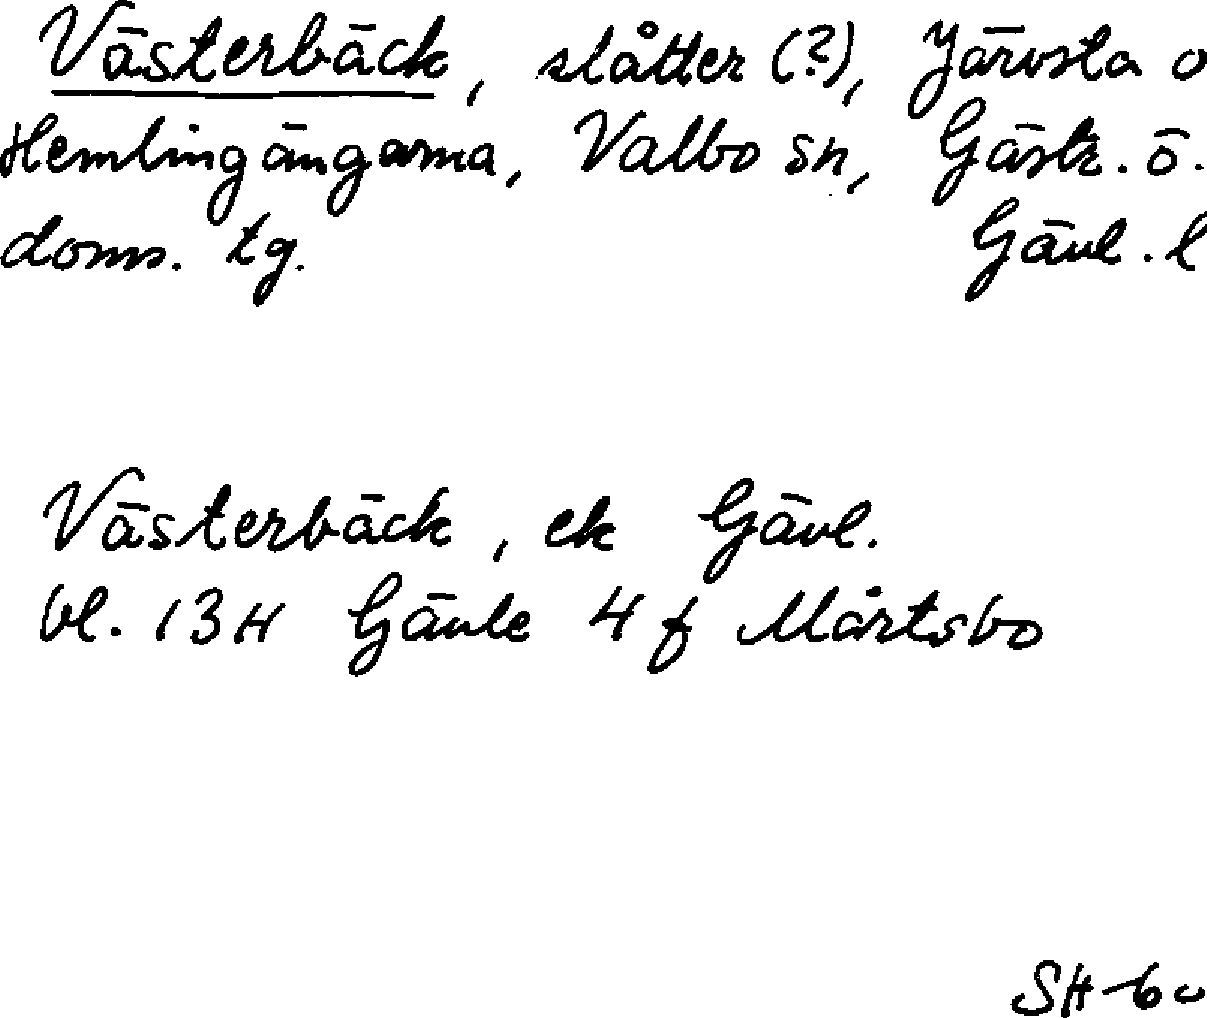 Västerbäck, slåtter (?), Järvsta o
Hemlingängarna, Valbo sn, Gästr. ö.
doms. tg. Gävl. l
Västerbäck, ek Gävl.
bl. 13H Gävle 4 f Mårtsbo
SH-60